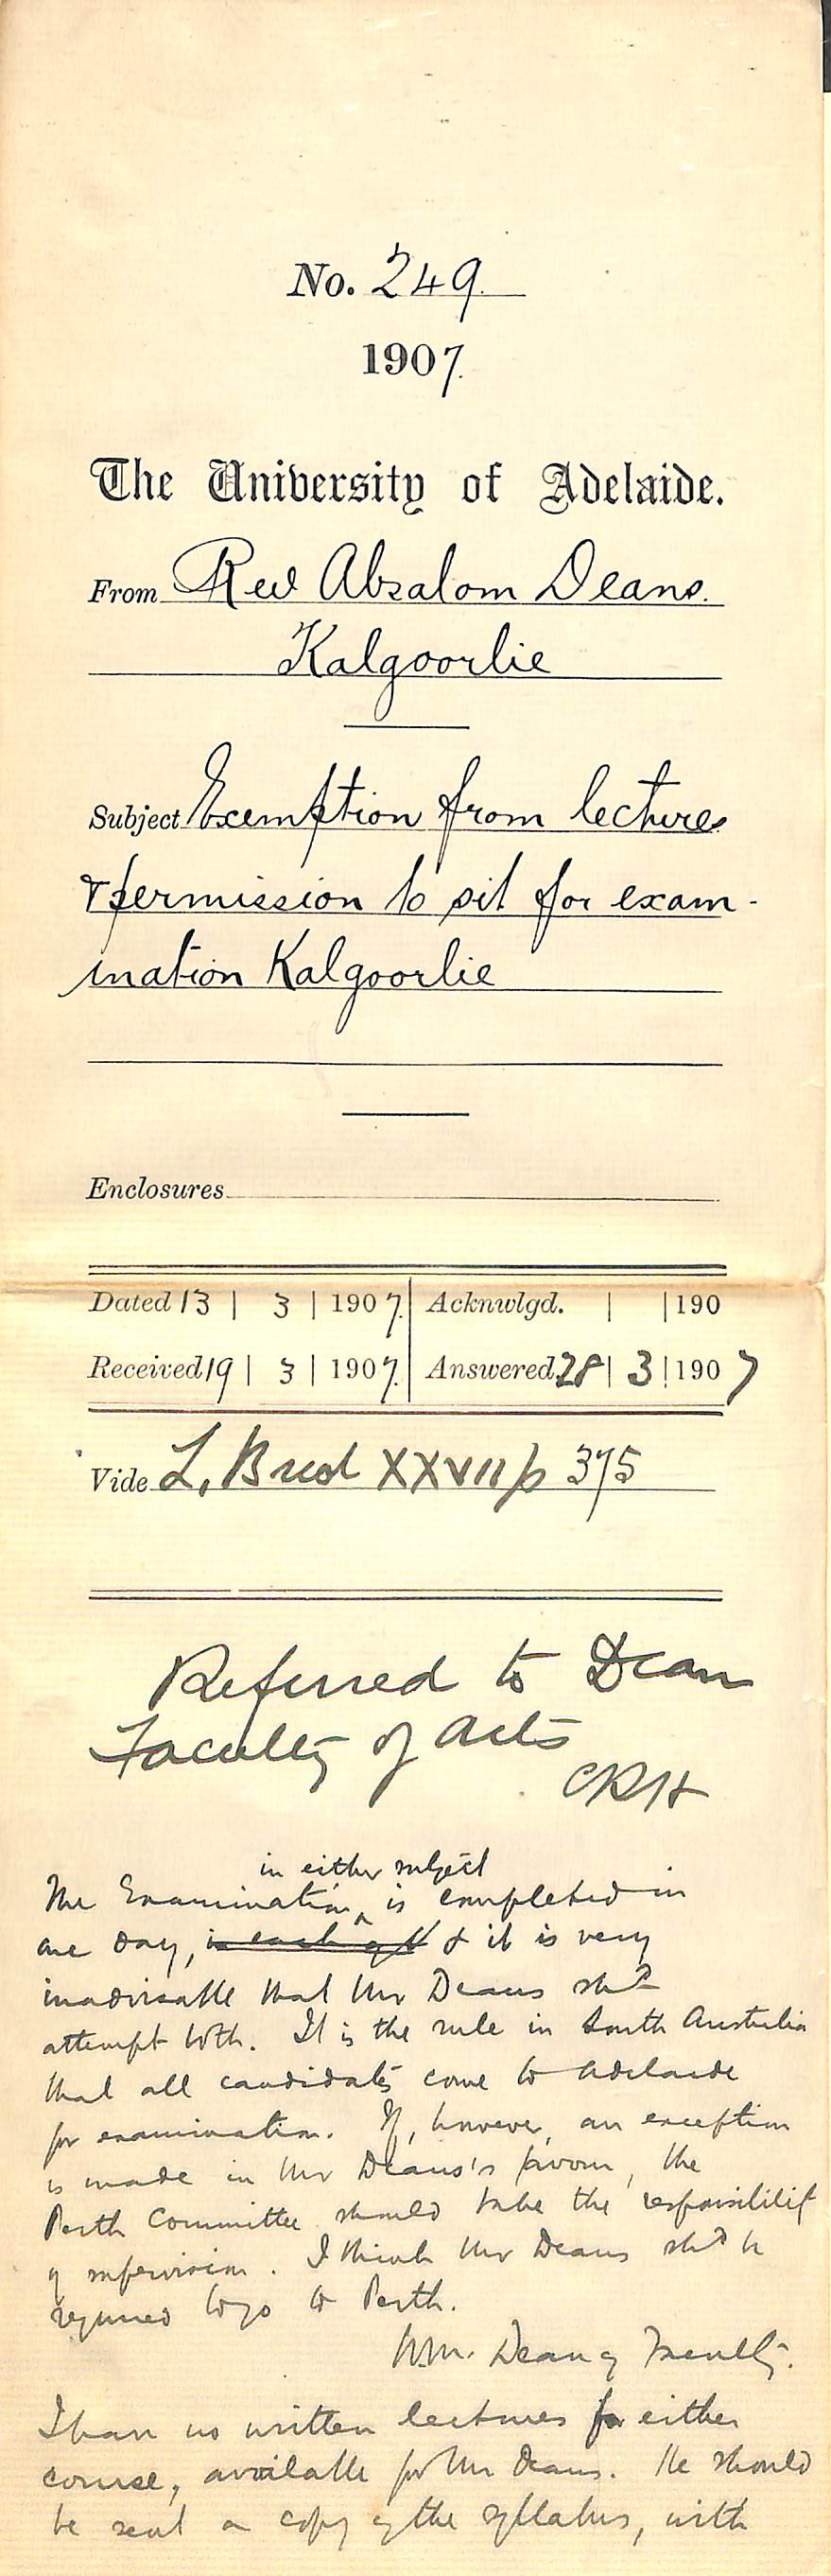 No. 249.
1907.
The University of Adelaide.
From Rev Absalom Deans.
Kalgoorlie
Subject Exemption from lectures
& permission to sit for exam-
ination Kalgoorlie
Enclosures
Dated 13 | 3 | 1907. Acknwlgd. | | 190
Received 19 | 3 | 1907. Answered 28 | 3 | 1907
Vide L. XXVII p 375
Referred to Dean
Faculty of Arts
CRH
in either subject
The Examination ^ is completed in
one day, in each of & it is very
inadvisable that Mr Deans shd
attempt both. It is the rule in South Australia
that all candidates come to Adelaide
for examination. If, however, an exception
is made in Mr Deans's favour, the
Perth Committee should take the responsibility
of supervision. I think Mr Deans shd be
required to go to Perth.
Dean of Faculty.
I have no written lectures for either
course, available for Mr Deans. He should
be sent a copy of the syllabus, with